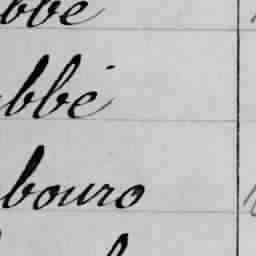 bbe
bbé
bouro